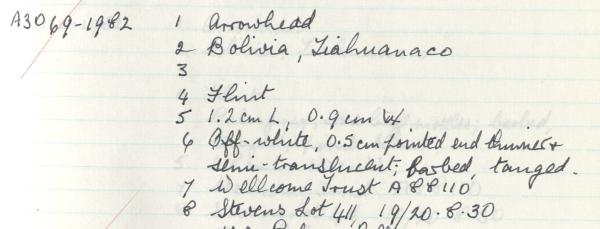 A3069-1982 1 Arrowhead
2 Bolivia, Tiahuanaco
3
4 Flint
5 1.2cm L, 0.9cm W
6 Off-white, 0.5cm pointed end thinner &
semi-translucent; barbed, tanged.
7 Wellcome Trust A 88110
8 Stevens Lot 411, 19/20.8.30